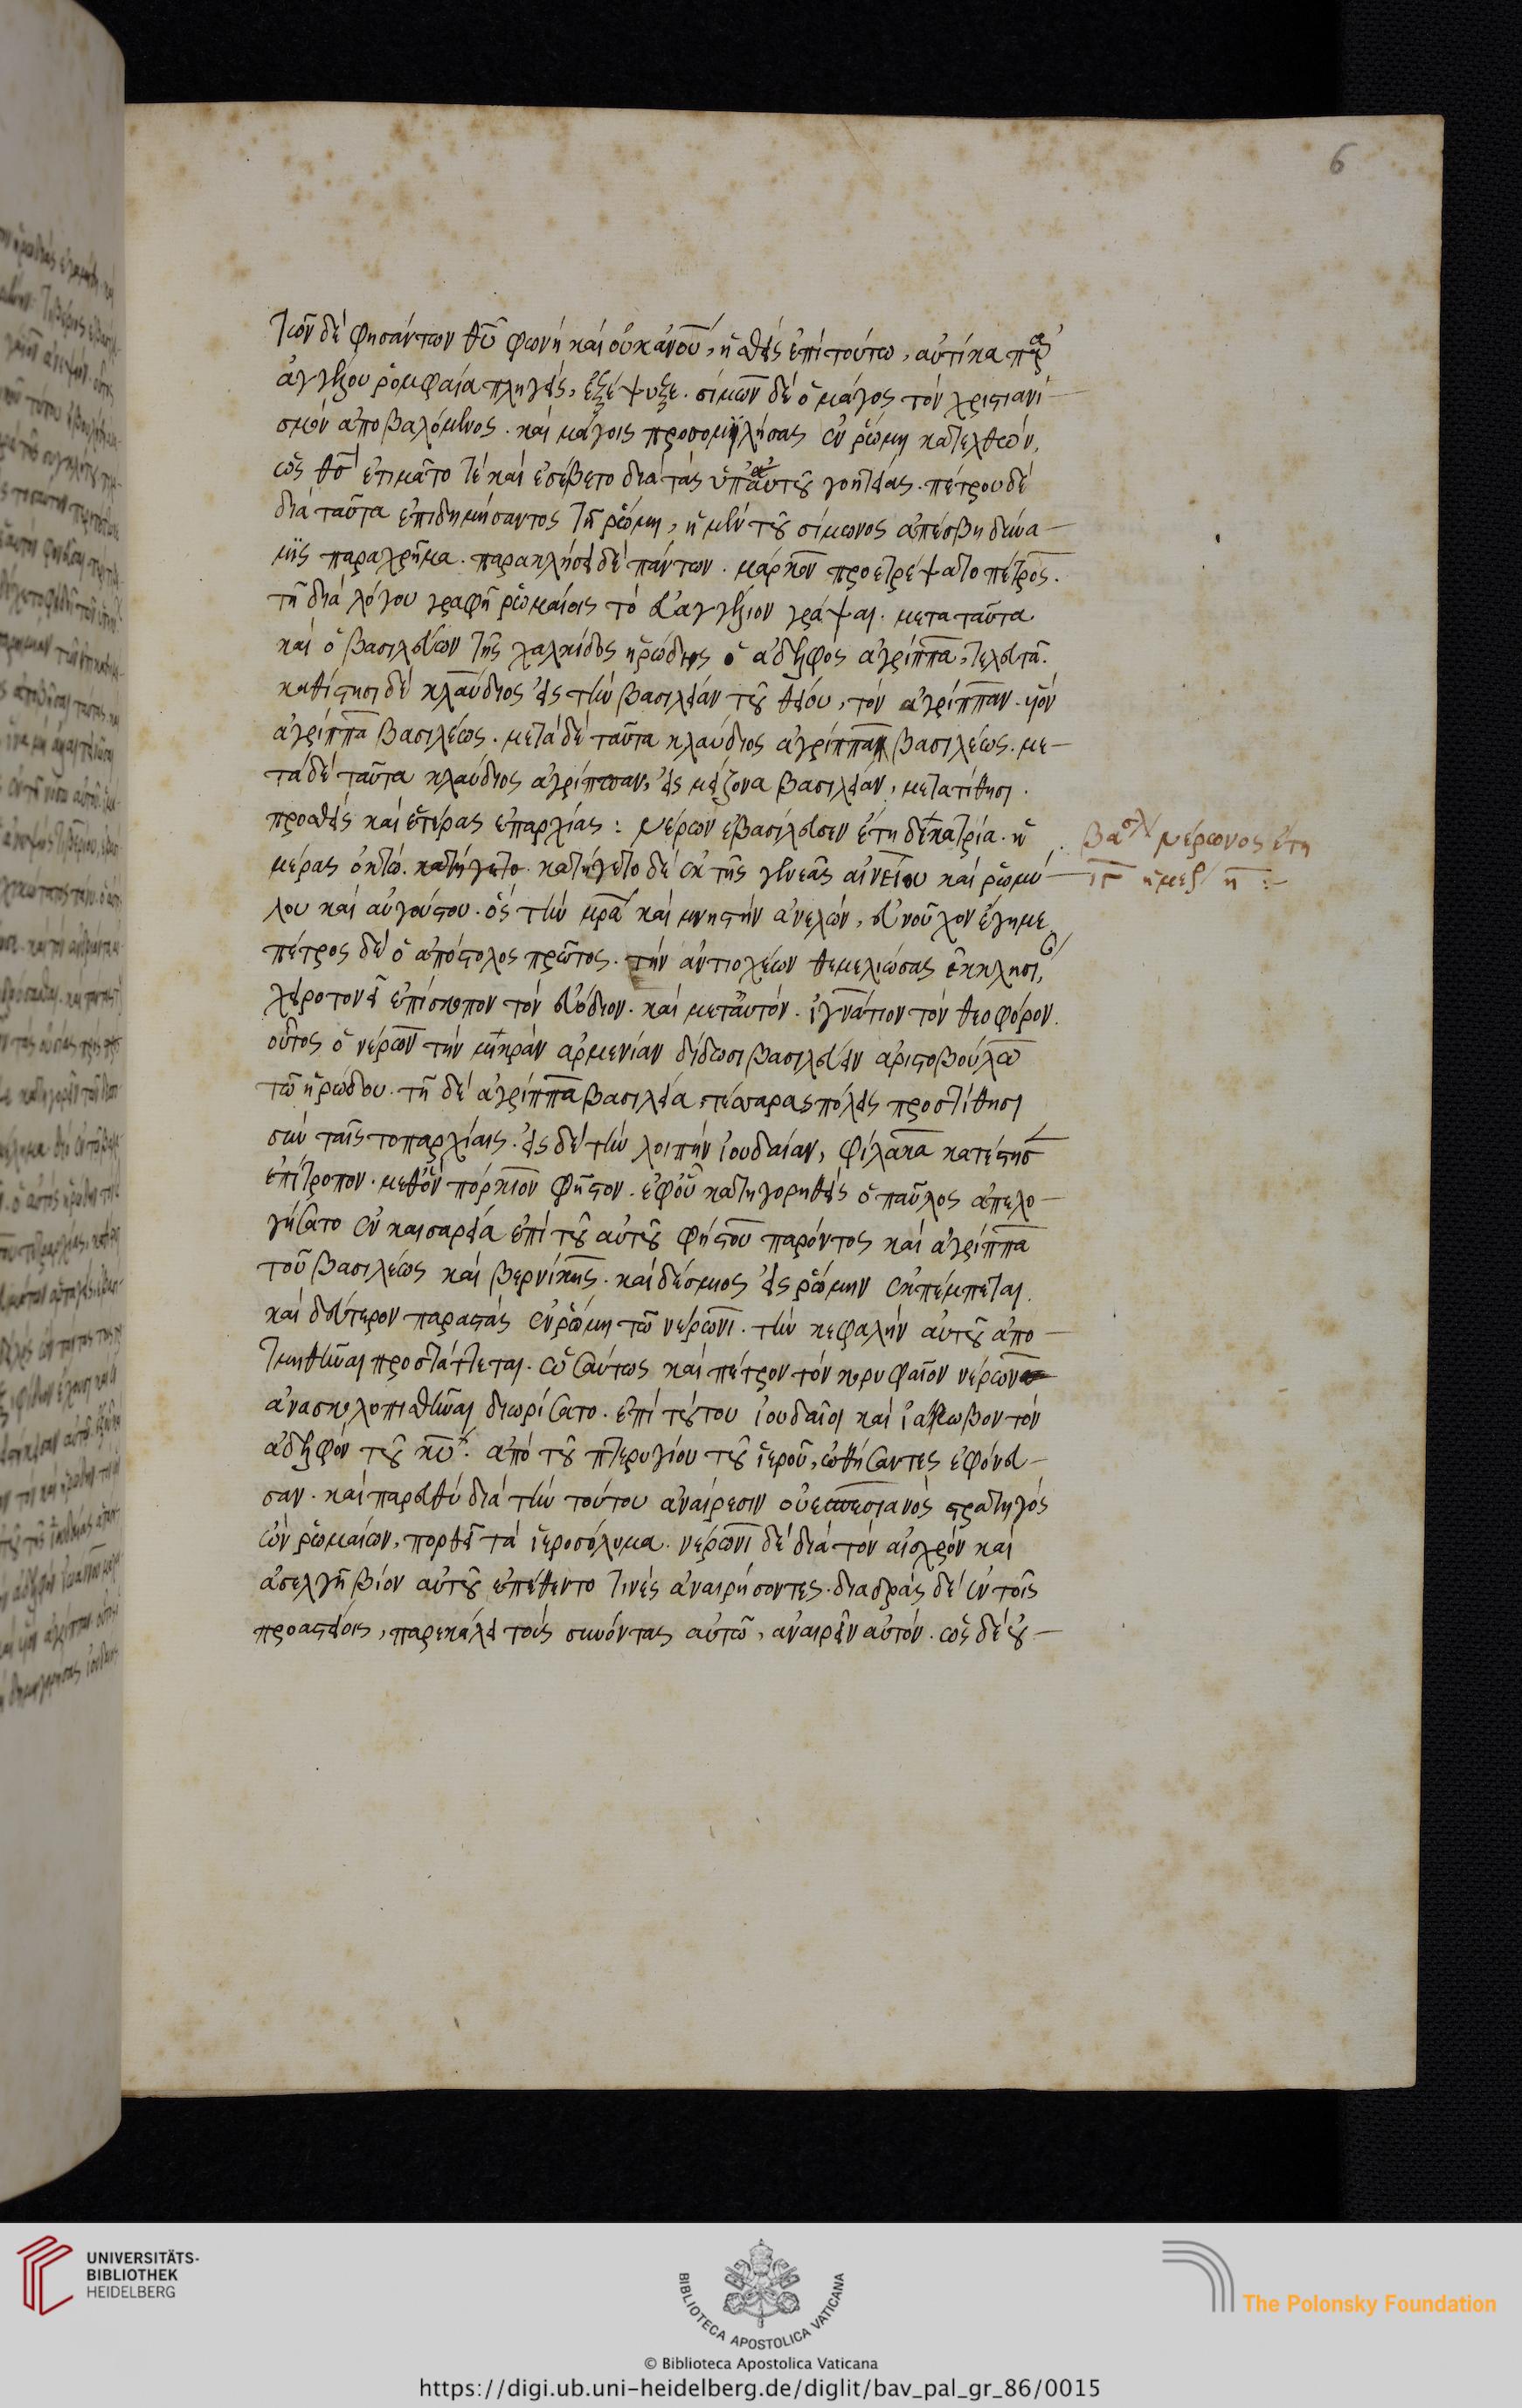 6
τῶν δὲ φησάντων θυ φωνὴ καὶ οὐκ ἀνου, ἡσθεὶς ἐπὶ τούτω, αὐτίκα παρ
ἀγγέλου ρομφαία πληγεὶς, ἐξέψυξε. σίμων δὲ ὁ μάγος τὸν χριστιανι
σμὸν ἀποβαλόμενος. καὶ μάγοις προσομιλήσας ἐν ῥώμη κατελθὼν,
ὡς θσ ἐτιμᾶτο τὲ καὶ ἐσέβετο διὰ τὰς ὑπ αὐτοῦ γοητείας. πέτρου δὲ
διὰ ταῦτα ἐπιδημήσαντος τῆ ῥώμη, ἡ μὲν τοῦ σίμωνος ἀπέσβη δύνα
μις παραχρῆμα. παρακλήσει δὲ πάντων. μάρκον προετρέψατο πέτρος.
τῆ διὰ λόγου γραφῆ ῥωμαίοις τὸ εὐαγγέλιον γράψαι. μετα ταῦτα
καὶ ὁ βασιλεύων τῆς χαλκίδος ἡρώδης ὁ ἀδελφος ἀγρίππα, τελευτᾶ.
καθίστησι δὲ κλαύδιος εἰς τὴν βασιλείαν τοῦ θείου, τὸν ἀγρίππαν υἱὸν
ἀγρίππα βασιλέως. μετὰ δὲ ταῦτα κλαύδιος ἀγρίππαν βασιλέως. με
τὰ δὲ ταῦτα κλαύδιος ἀγρίππαν, εἰς μείζονα βασιλείαν, μετατίθησι.
προσθεὶς καὶ ἑτέρας ἐπαρχίας: νέρων ἐβασίλευσεν ἔτη δεκατρία. ἡ
μέρας ὀκτώ. κατήγετο. κατήγετο δὲ ἐκ τῆς γενεᾶς αἰνείου καὶ ῥωμύ
λου καὶ αὐγούστου. ὃς τὴν μρα καὶ μνηστὴν ἀνελὼν, εὐνοῦχον ἔγημε
πέτρος δὲ ὁ ἀπόστολος πρῶτος. τὴν ἀντιοχέων θεμελιώσας ἐκκλησι,
χειροτονεῖ ἐπίσκοπον τὸν εὐόδιον. καὶ μετ αὐτὸν. ἰγνάτιον τὸν θεοφόρον.
οὗτος ὁ νέρων τὴν μικρὰν ἀρμενίαν δίδωσι βασιλεύειν ἀριστοβούλω
τῶ ἡρώδου. τῆ δὲ ἀγρίππα βασιλεία, τέσσαρας πόλεις προστίθησι
σὺν ταῖς τοπαρχίαις. εἰς δὲ τὴν λοιπὴν ἰουδαίαν, φίλακα κατέστησ
ἐπίτροπον. μεθ ὃν πόρκιον φῆστον. ἐφ οὗ κατηγορηθεὶς ὁ παῦλος ἀπελο
γήσατο ἐν καισαρεία ἐπὶ τοῦ αὐτοῦ φήστου παρόντος καὶ ἀγρίππα
τοῦ βασιλέως καὶ βερνίκης. καὶ δέσμιος εἰς ῥώμην ἐκπέμπεται.
καὶ δεύτερον παραστὰς ἐν ῥώμη τῶ νέρωνι. τὴν κεφαλὴν αὐτοῦ ἀπο
τμηθῆναι προστάττεται. ὡσαύτως καὶ πέτρον τὸν κορυφαῖον νέρων
ἀνασκολοπισθῆναι διωρίσατο. ἐπὶ τούτου ἰουδαῖοι καὶ ἰάκωβον τὸν
ἀδελφὸν τοῦ κυ. ἀπὸ τοῦ πτερυγίου τοῦ ἱεροῦ, ὠθήσαντες ἐφόνευ
σαν. καὶ παρευθὺ διὰ τὴν τούτου ἀναίρεσιν οὐεσπεσιανὸς στρατηγὸς
ὢν ῥωμαίων, πορθεῖ τὰ ἱεροσόλυμα. νέρωνι δὲ διὰ τὸν αἰσχρὸν καὶ
ἀσελγῆ βίον αὐτοῦ ἐπέθεντο τινὲς ἀναιρήσοντες. διαδρὰς δὲ ἐν τοῖς
προαστείοις, παρεκάλει τοὺς συνόντας αὐτῶ, ἀναιρεῖν αὐτόν. ὡς δὲ οὐ
βασιλ νέρωνος ἔτη
ιγ ἡμερ η :-
UNIVERSITÄTS-
BIBLIOTHEK
HEIDELBERG
BIBLIOTECA APOSTOLICA VATICANA
The Polonsky Foundation
© Biblioteca Apostolica Vaticana
https://digi.ub.uni-heidelberg.de/diglit/bav_pal_gr_86/0015